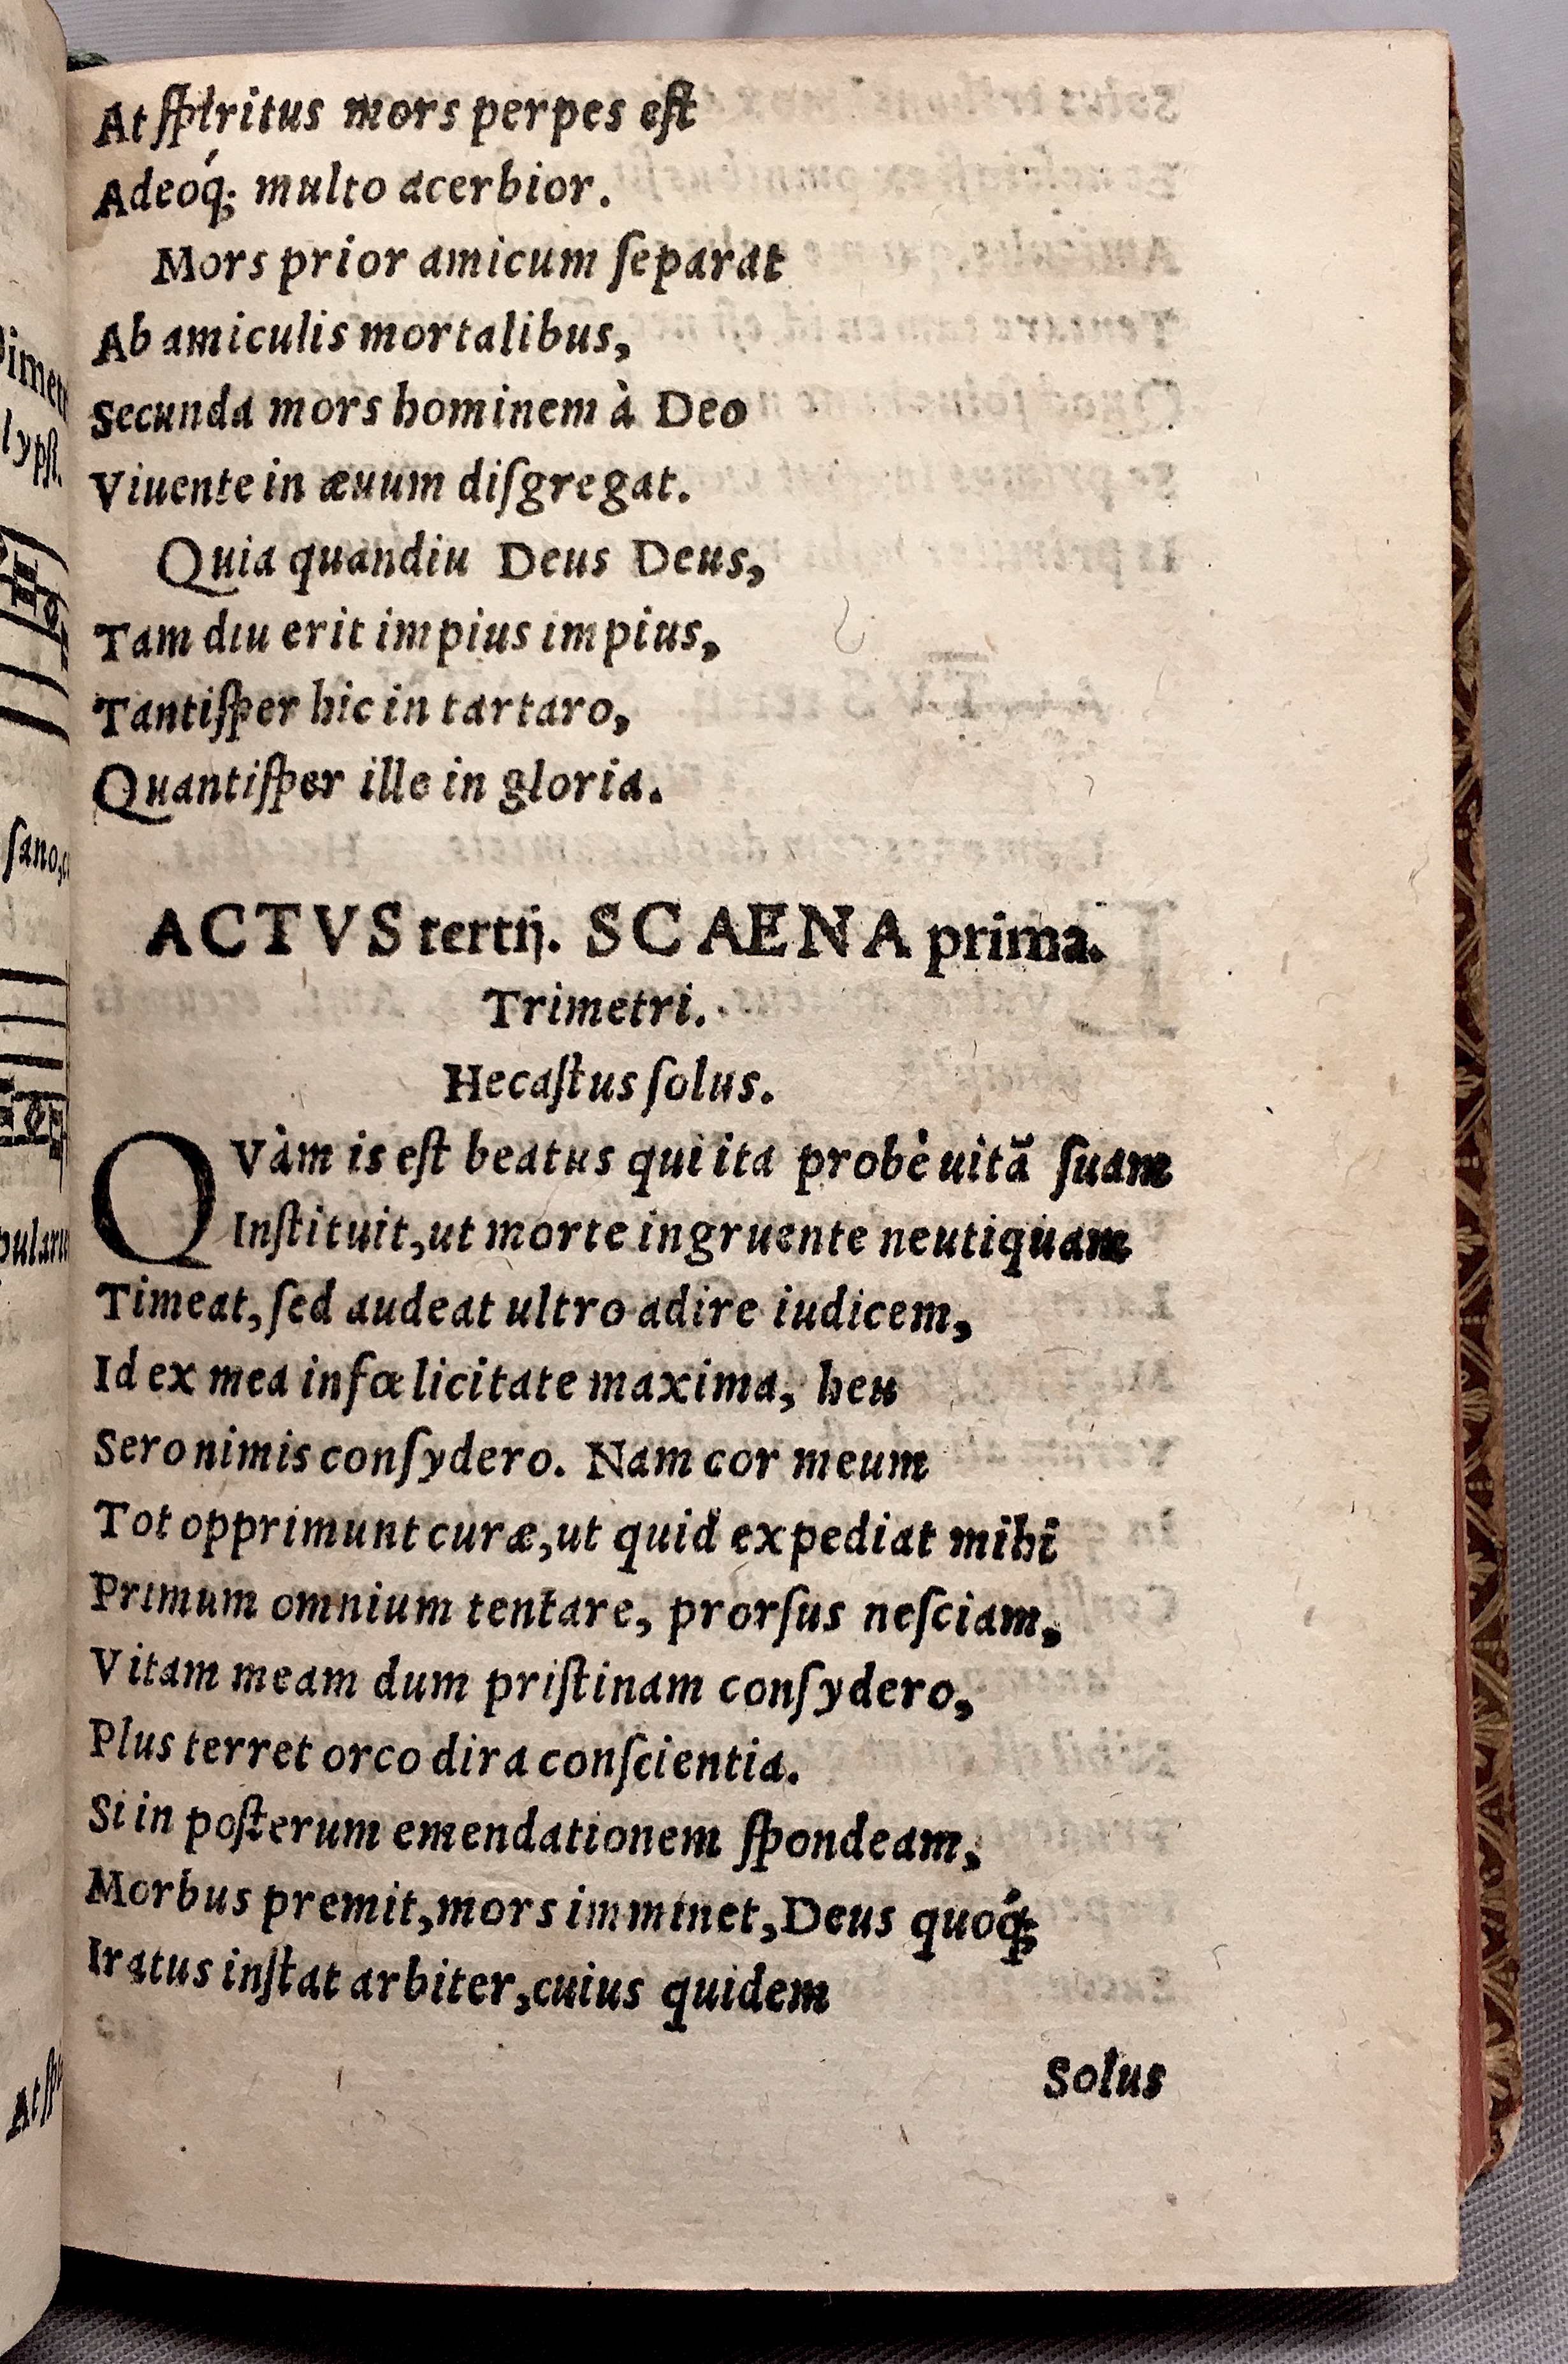 At ſpiritus mors perpes eſt
Adeoq́; multo acerbior.
Mors prior amicum ſeparat
Ab amiculis mortalibus,
Secunda mors hominem à Deo
Viuente in æuum diſgregat.
Quia quandiu Deus Deus,
Tam diu erit impius impius,
Tantiſper hic in tartaro,
Quantiſper ille in gloria.
ACTVS tertij. SCAENA prima.
Trimetri.
Hecaſtus ſolus.
QVàm is eſt beatus qui ita probè uitã ſuam
Inſtituit, ut morte ingruente neutiquam
Timeat, ſed audeat ultro adire iudicem,
Id ex mea infœlicitate maxima, heu
Sero nimis conſydero. Nam cor meum
Tot opprimunt curæ, ut quid expediat mihi
Primum omnium tentare, prorſus neſciam,
Vitam meam dum priſtinam conſydero,
Plus terret orco dira conſcientia.
Si in poſterum emendationem ſpondeam,
Morbus premit, mors imminet, Deus quoq́;
Iratus inſtat arbiter, cuius quidem
Solus